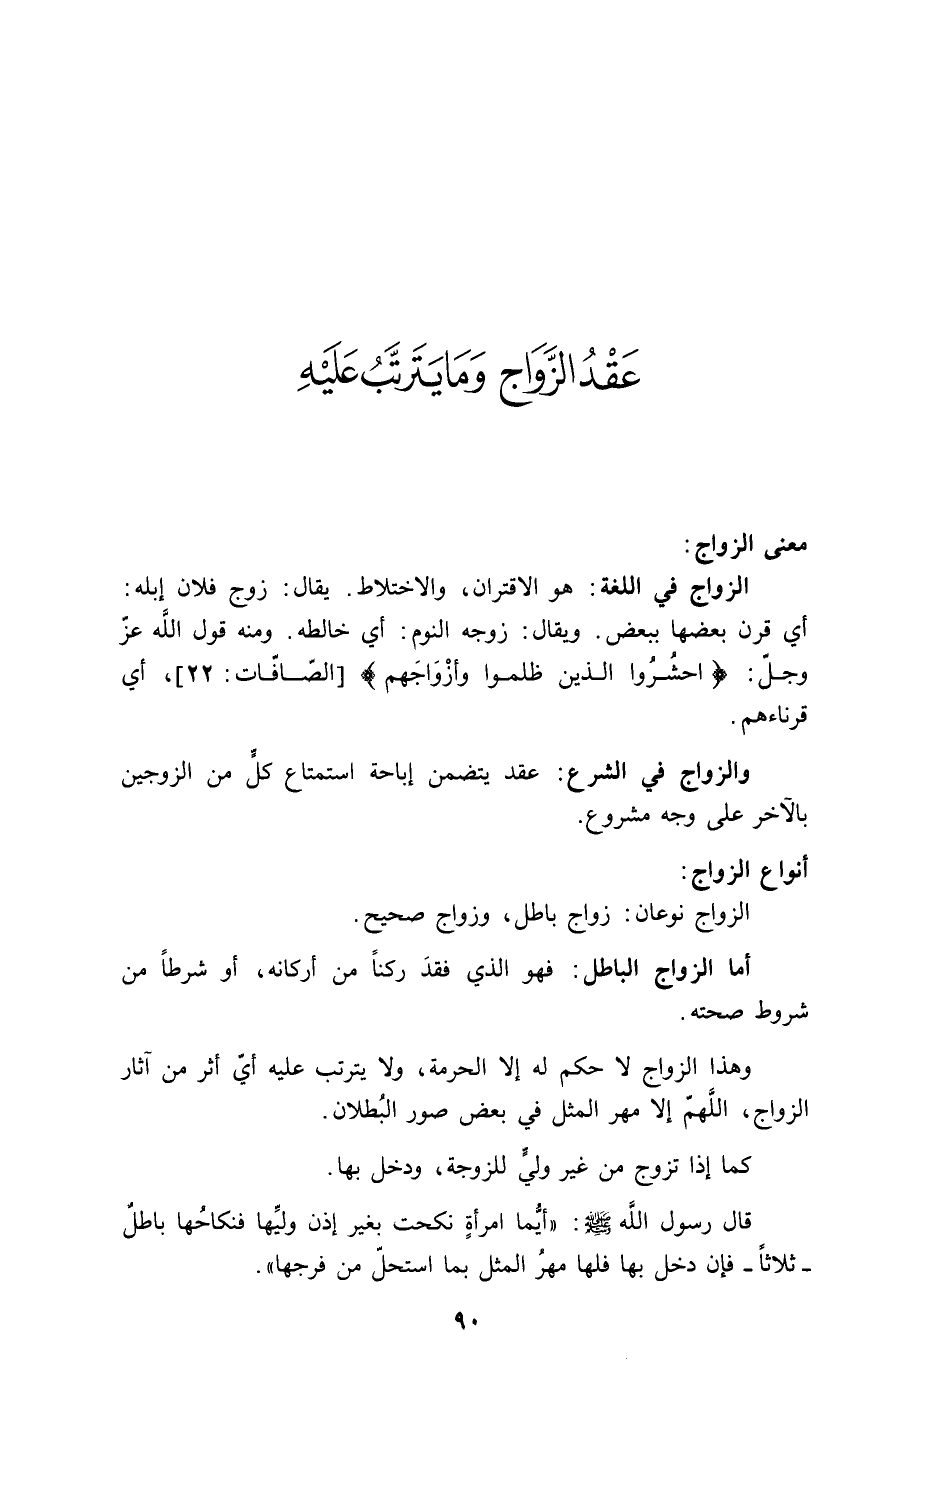 عَقْدُ الزَّوَاجِ وَمَا يَتَرتَّبُ عَلَيْهِ
معنى الزواج:
الزواج في اللغة: هو الاقتران، والاختلاط. يقال: زوج فلان إبله:
أي قرن بعضها ببعض. ويقال: زوجه النوم: أي خالطه. ومنه قول اللَّه عزّ
وجلّ: ﴿احشُرُوا الذين ظلموا وأزْوَاجَهم﴾ [الصّافّات: ٢٢]، أي
قرناءهم.
والزواج في الشرع: عقد يتضمن إباحة استمتاع كلٍّ من الزوجين
بالآخر على وجه مشروع.
أنواع الزواج:
الزواج نوعان: زواج باطل، وزواج صحيح.
أما الزواج الباطل: فهو الذي فقدَ ركناً من أركانه، أو شرطاً من
شروط صحته.
وهذا الزواج لا حكم له إلا الحرمة، ولا يترتب عليه أيّ أثر من آثار
الزواج، اللَّهمّ إلا مهر المثل في بعض صور البُطلان.
كما إذا تزوج من غير وليٍّ للزوجة، ودخل بها.
قال رسول اللَّه ﷺ: «أيُّما امرأةٍ نكحت بغير إذن وليِّها فنكاحُها باطلٌ
ـ ثلاثاً ـ فإن دخل بها فلها مهرُ المثل بما استحلّ من فرجها».
٩٠